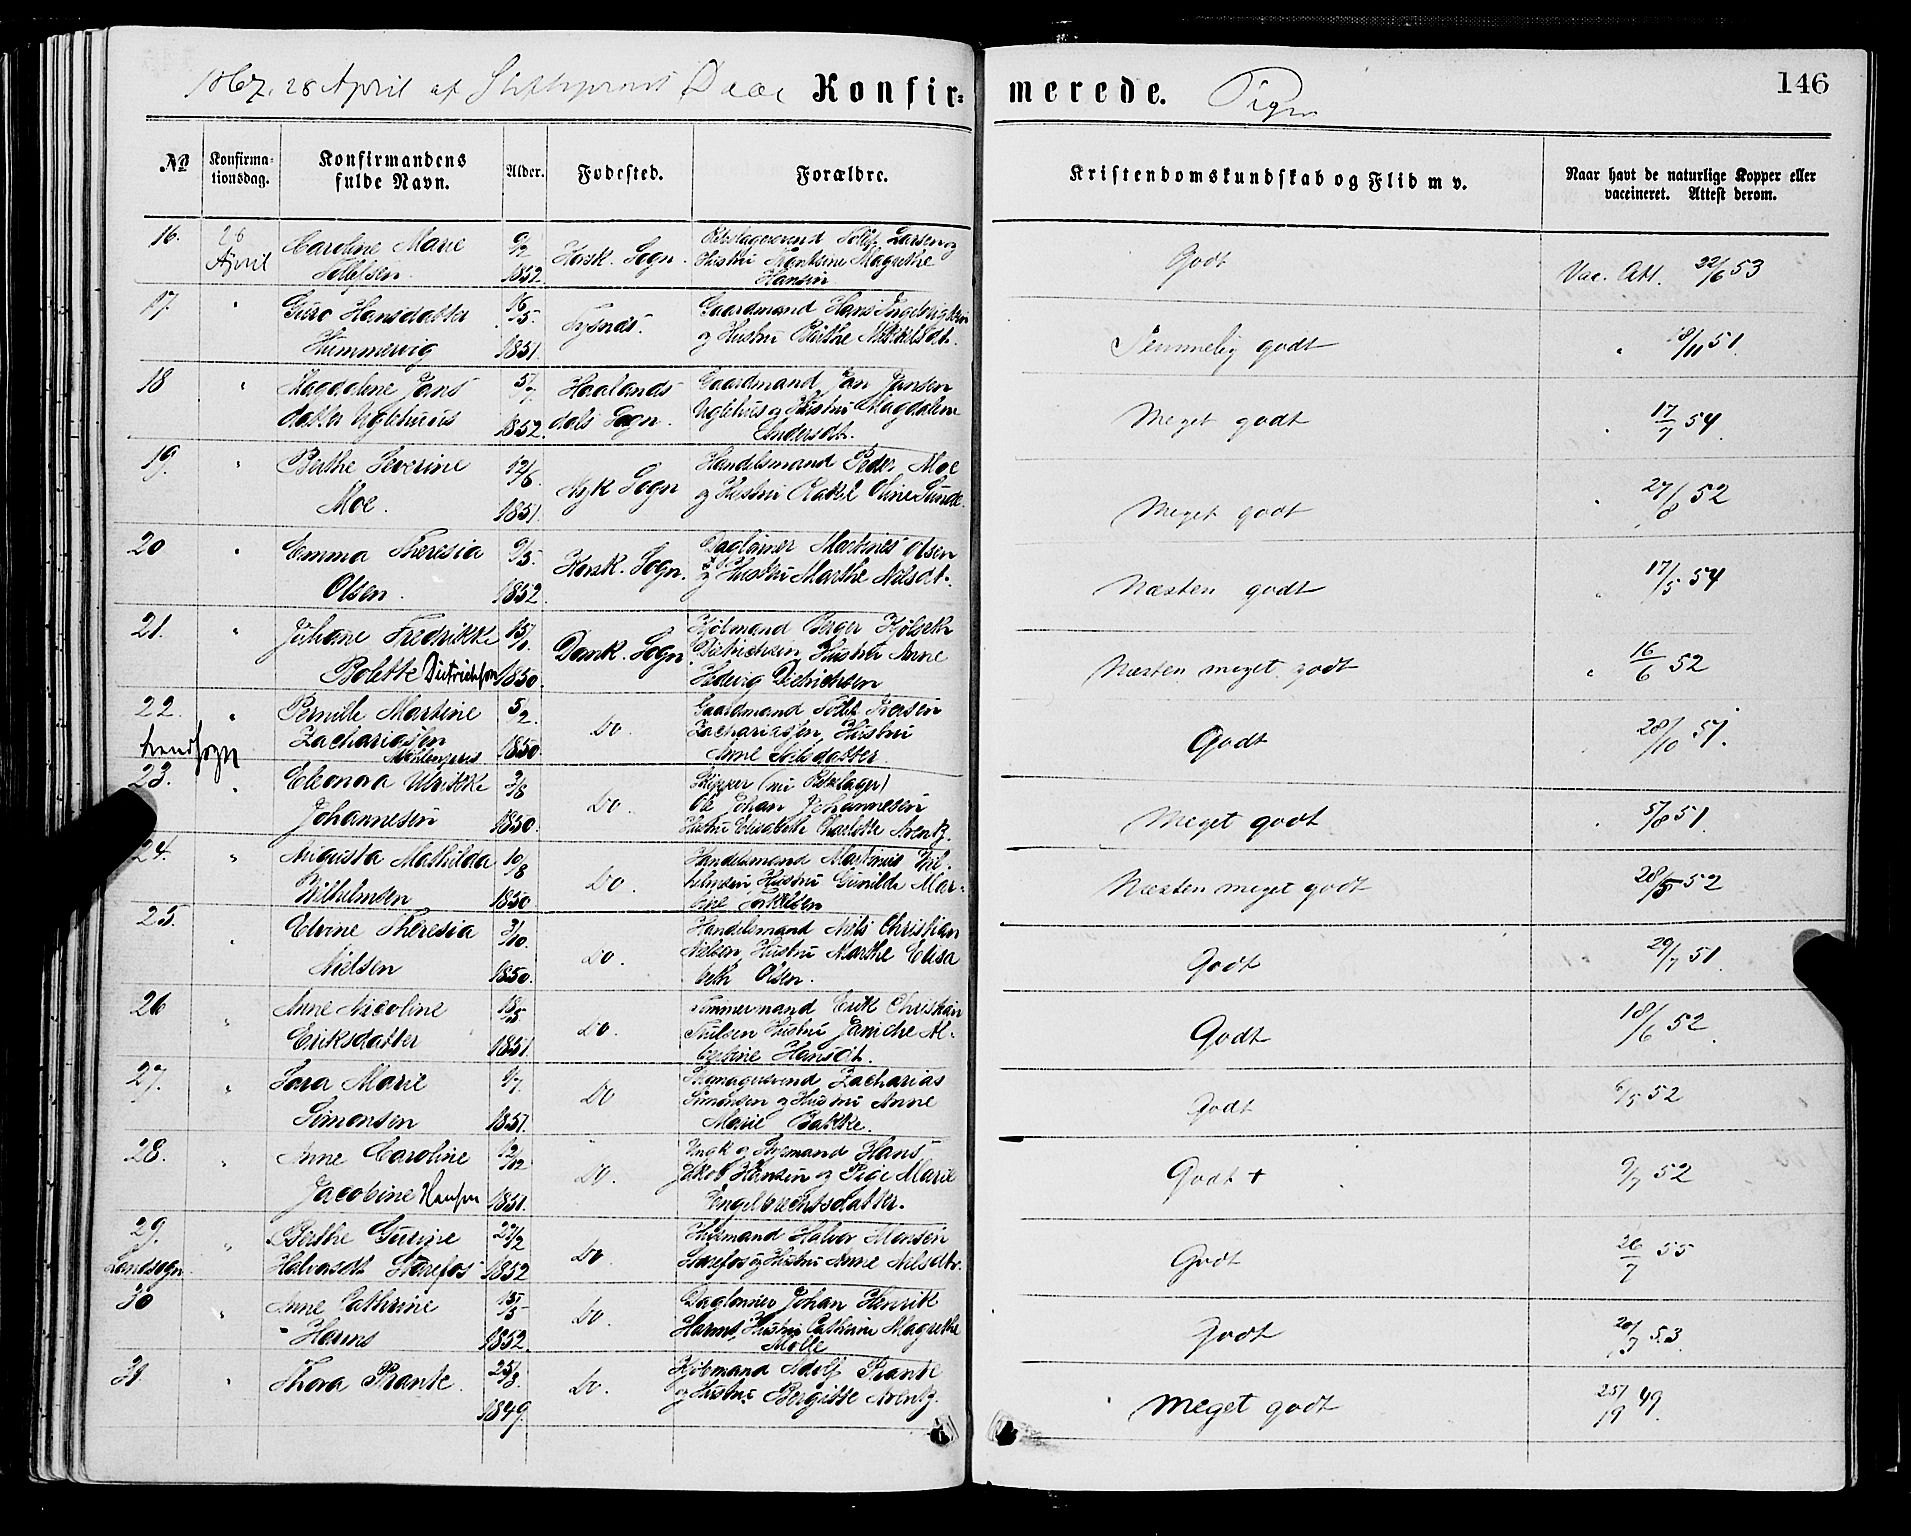 1867. 28 April af Stiftsprovst Daae Konfirmerede. Piger
146
No
Konfirmationsdag.
Konfirmandens fulde Navn.
Alder.
Fødested.
Forældre.
Kristendomskundskab og Flid m v.
Naar havt de naturlige Kopper eller vaccineret. Attest derom.
16. 28 Caroline Marie 9/2 Svend Tollef Larsen og
April Tollefsen. 1852. Korsk. Sogn. Hustru Magrethe
Hansen
Godt Vac. Att. 22/6 53
17. " Guro Hansdatter 16/5. Tysnæs. Gaardmand Hans
Hummervig 1851. og Hustru Berthe Mikkelsdt.
Temmelig godt " 18/11 51.
18 " Magdalene Jans 5/7 Haalands Gaardmand Jan Jansen
datter Uglehuus 1852. dals Sogn. Uglehus og Hustru Magdalene
Andersdt.
Meget godt " 17/7 54.
19. " Berthe Severine 12/6. Nyk Sogn Handelsmand Peder Moe
Moe. 1851. og Hustru Rakel Oline Sunde.
Meget godt " 27/8 52
20 " Emma Theresia 9/5. Korsk. Sogn. Daglønner Martines Olsen
Olsen. 1852. og Hustru Marthe Nilsdt.
Næsten godt " 17/5 54
21. " Juliane Fredrikke 15/1. Domk. Sogn. Kjøbmand Berger Kjølseth
Bolette Dietrichson 1850. Dietrichsen, Hustru Anne
Hedevig Dietrichsen
Næsten meget godt " 16/6 52
22. " Pernille Martine 5/2. Do. Gaardmand Tollef Iversen
Landsogn Zachariasen 1850 Zachariasen, Hustru
Anne Nilsdatter
Godt 28/10 51.
23. " Eleonora Ulrikke 3/8 Do. Skipper (nu Rebslager)
Johannesen 1850. Ole Johan Johannesen
Hustru Elisabeth Charlotte Arentz.
Meget godt 5/8 51.
24. " Augusta Mathilda 10/8 Do. Handelsmand Martinus Wil-
Wilhelmsen 1850. helmsen, Hustru Gunilde Mar-
tine Torkelsen
Næsten meget godt 28/5 52
25. " Elvine Theresia 3/10. Do. Handelsmand Nils Christian
Nielsen 1850. Nielsen, Hustru Marthe Elisa
beth Olsen.
Godt 29/7 51.
26 " Anne Nicoline 18/5 Do. Tømmermand Erik Christian
Eriksdatter 1851. Nielsen Hustru Janiche Al-
bertine Hansdt.
Godt 18/6 52.
27. " Sara Marie 9/7. Do Zacharias
Simonsen 1851. Simonsen og Hustru Anne
Marie Bakke.
Godt 6/5 52
28. " Anne Caroline 12/12 Do. Ungk. og Styrmand Hans
Jacobine Hansen 1851. Jakob Hansen og Pige Marie
Engelbrechtsdatter.
Godt + 9/7 52
29. " Berthe Gurine 27/2 Do Husmand Halvor Monsen
Landsogn Halvorsdt. Starefos 1852 Starefos og Hustru Anne Nilsdtr.
Godt 26/7 55
30 " Anne Cathrine 15/5 Do. Daglønner Johan Henrik
Harms 1852. Harms, Hustru Cathrine Magrethe
Molle
Godt 20/3 53.
31 " Thora Prante. 25/8. Do. Kjøbmand Adolf Prante
1849. og Hustru Bergitte Arentz.
Meget godt 49.